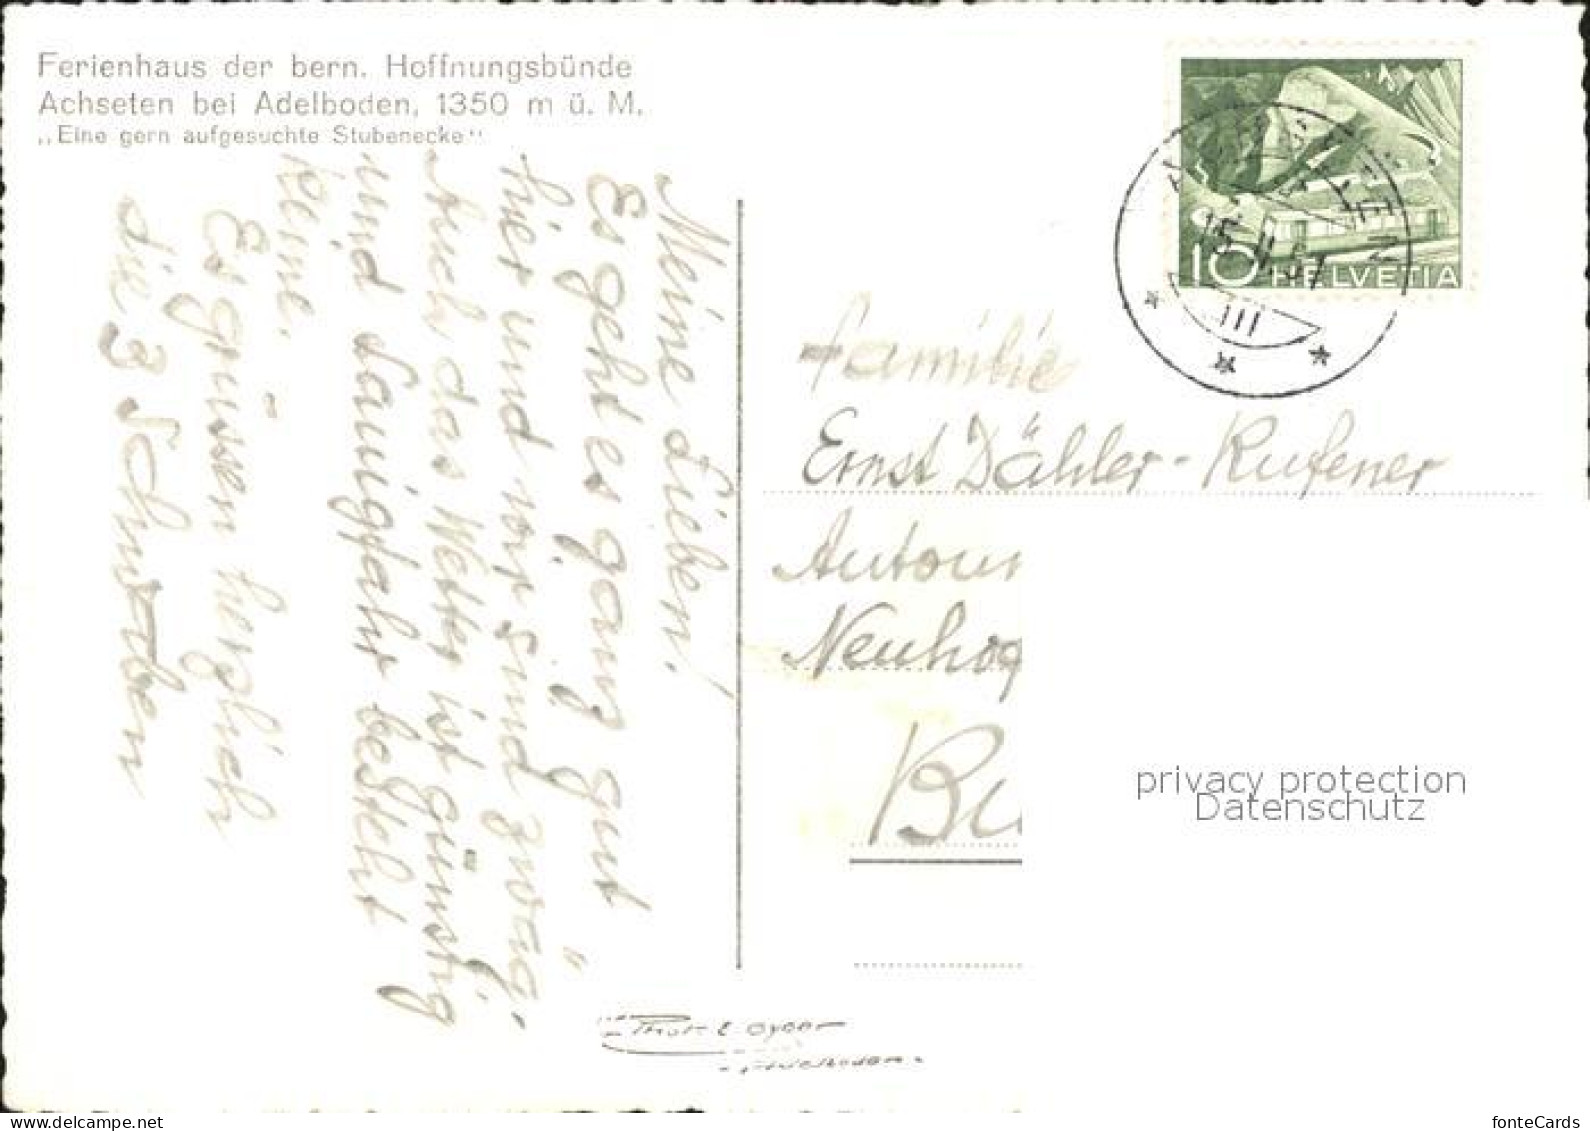 Ferienhaus der bern. Hoffnungsbünde
Achseten bei Adelboden, 1350 m ü. M.
„Eine gern aufgesuchte Stubenecke"
Meine Lieben!
Es geht es ganz gut
hier und wir sind zwäg.
Auch das Wetter ist günstig
und Langjahr besteht
keine.
Es grüssen herzlich
die 3 Schwalben
10 HELVETIA
III
Familie
Ernst Dähler-Rufener
Autom
Neuhog
Bu
privacy protection
Datenschutz
www.delcampe.net
fonteCards